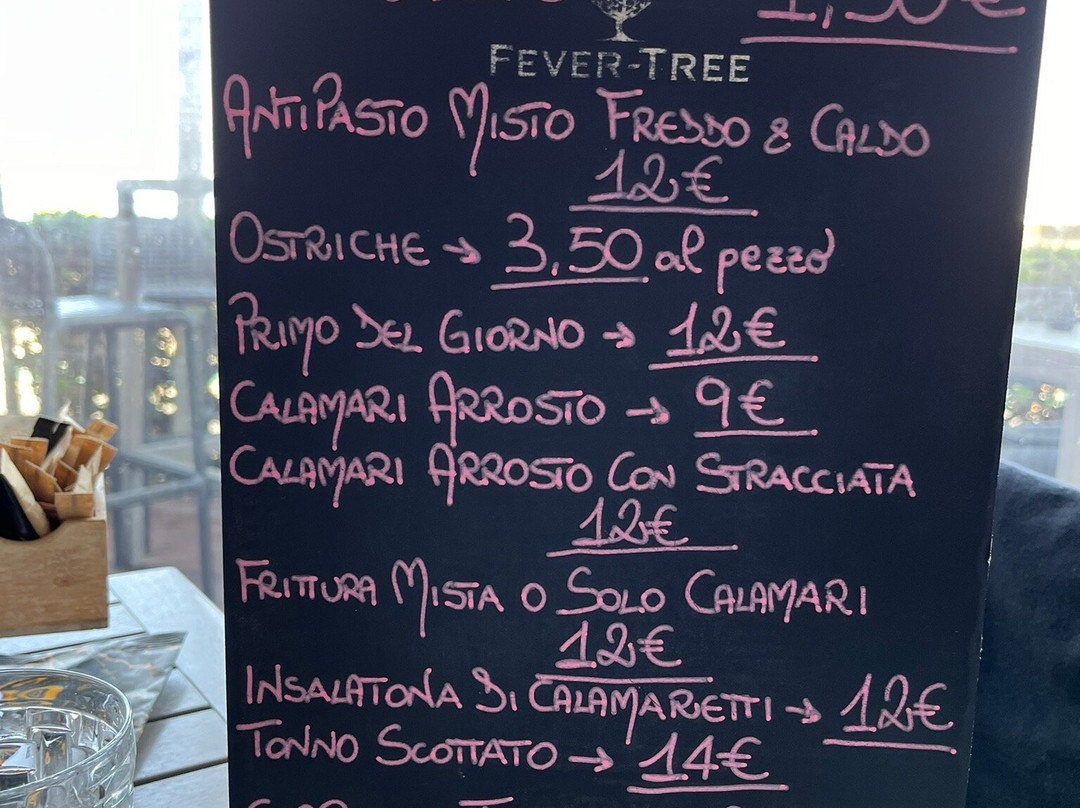 1,50€
FEVER-TREE
ANTIPASTO MISTO FREDDO & CALDO
12€
OSTRICHE → 3,50 al pezzo
PRIMO DEL GIORNO → 12€
CALAMARI ARROSTO → 9€
CALAMARI ARROSTO CON STRACCIATA
12€
FRITTURA MISTA O SOLO CALAMARI
12€
INSALATONA DI CALAMARETTI → 12€
TONNO SCOTTATO → 14€